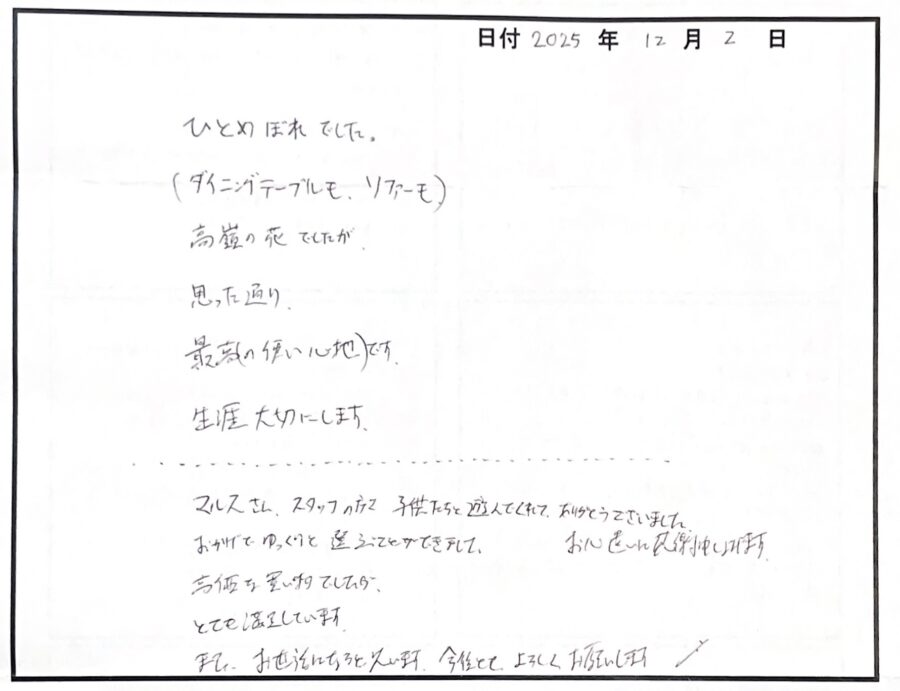 日付 2025 年 12 月 2 日
ひとめぼれでした。
(ダイニングテーブルも、ソファーも)
高嶺の花でしたが、
思った通り、
最高(の使い心地)です。
生涯大切にします。
マルスさん、スタッフの方で子供たちと遊んでくれて、ありがとうございました。
おかげでゆっくりと選ぶことができまして、 お心遣いに感謝申し上げます。
高価な買い物でしたが、
とても満足しています。
また、お世話になると思います。今後とも、よろしくお願いします